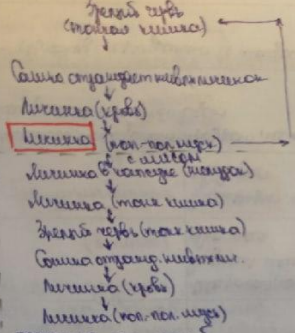 Зрелый червь
(тонкая кишка)
Самка отрождает живых личинок
Личинка (кровь)
Личинка (поп-поп. мускул)
с мясом
Личинка в капсуле (желудок)
Личинка (тонк кишка)
Зрелый червь (тонк кишка)
Самка отрожд. живых лич.
Личинка (кровь)
Личинка (поп.-поп. муск)